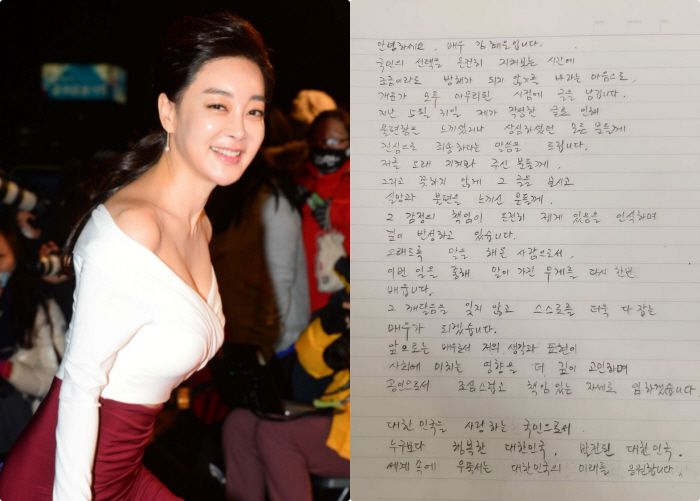 안녕하세요, 배우 김혜은입니다.
국민의 선택을 온전히 지켜보는 시간에
조금이라도 방해가 되지 않기를 바라는 마음으로,
개표가 모두 마무리된 시점에 글을 남깁니다.
지난 5월 31일 제가 작성한 글로 인해
불편함을 느끼셨거나 상심하셨던 모든 분들께
진심으로 죄송하다는 말씀을 드립니다.
저를 오래 지켜봐 주신 분들께,
그리고 뜻하지 않게 그 글을 보시고
실망과 불편을 느끼신 분들께,
그 감정의 책임이 온전히 제게 있음을 인식하며
깊이 반성하고 있습니다.
오래도록 말을 해온 사람으로서,
이번 일을 통해 말이 가진 무게를 다시 한번
배웁니다.
그 깨달음을 잊지 않고 스스로를 더욱 다잡는
배우가 되겠습니다.
앞으로는 배우로서 저의 생각과 표현이
사회에 미치는 영향을 더 깊이 고민하며
공인으로서 조심스럽고 책임 있는 자세로 임하겠습니다
대한민국을 사랑하는 국민으로서
누구보다 행복한 대한민국, 발전된 대한민국,
세계 속에 우뚝서는 대한민국의 미래를 응원합니다.